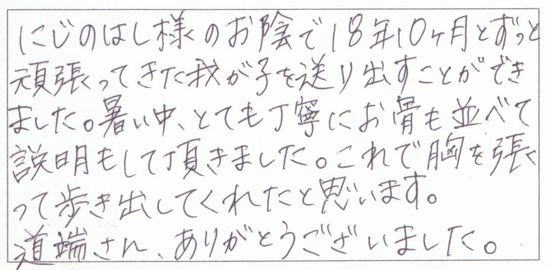 にじのはし様のお陰で18年10ヶ月とずっと
頑張ってきた我が子を送り出すことができ
ました。暑い中、とても丁寧にお骨も並べて
説明もして頂きました。これで胸を張
って歩き出してくれたと思います。
道端さん、ありがとうございました。